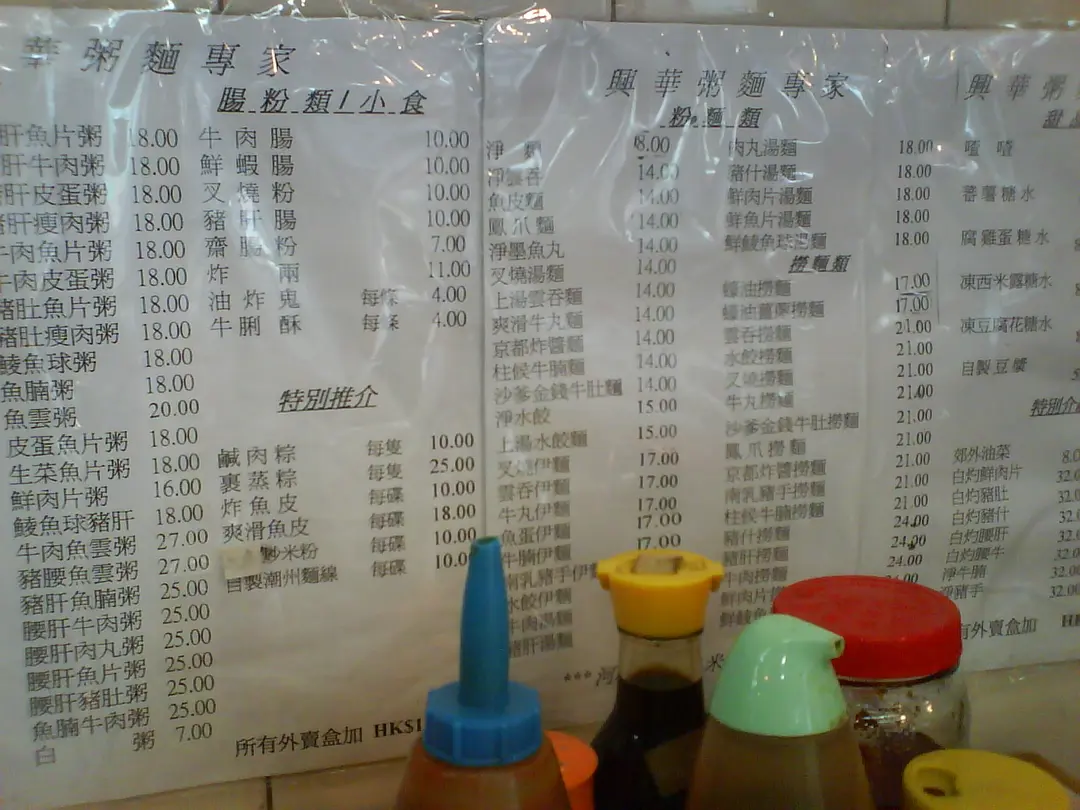 華粥麵專家
肝魚片粥 18.00
肝牛肉粥 18.00
肝皮蛋粥 18.00
肝瘦肉粥 18.00
牛肉魚片粥 18.00
牛肉皮蛋粥 18.00
豬肚魚片粥 18.00
豬肚瘦肉粥 18.00
鯪魚球粥 18.00
魚腩粥 18.00
魚雲粥 20.00
皮蛋魚片粥 18.00
生菜魚片粥 18.00
鮮肉片粥 16.00
鯪魚球豬肝 18.00
牛肉魚雲粥 27.00
豬腰魚雲粥 27.00
豬肝魚腩粥 25.00
腰肝牛肉粥 25.00
腰肝肉丸粥 25.00
腰肝魚片粥 25.00
腰肝豬肚粥 25.00
魚腩牛肉粥 25.00
白粥 7.00
腸粉類/小食
牛肉腸 10.00
鮮蝦腸 10.00
叉燒粉 10.00
豬肝腸 10.00
齋腸粉 7.00
炸兩 11.00
油炸鬼 每條 4.00
牛脷酥 每條 4.00
特別推介
鹹肉粽 每隻 10.00
裹蒸粽 每隻 25.00
炸魚皮 每碟 10.00
爽滑魚皮 每碟 18.00
炒米粉 每碟 10.00
自製潮州麵線 每碟 10.00
所有外賣盒加 HK$1
興華粥麵專家
粉麵類
淨麵 8.00
淨雲吞 14.00
魚皮麵 14.00
鳳爪麵 14.00
淨墨魚丸 14.00
叉燒湯麵 14.00
上湯雲吞麵 14.00
爽滑牛丸麵 14.00
京都炸醬麵 14.00
柱候牛腩麵 14.00
沙爹金錢牛肚麵 14.00
淨水餃 15.00
上湯水餃麵 15.00
叉燒伊麵 17.00
雲吞伊麵 17.00
牛丸伊麵 17.00
魚蛋伊麵 17.00
牛腩伊麵 17.00
南乳豬手伊
水餃伊麵
牛肉湯麵
豬肝湯麵
肉丸湯麵 18.00
豬什湯麵 18.00
鮮肉片湯麵 18.00
鮮魚片湯麵 18.00
鮮鯪魚球湯麵 18.00
撈麵類
蠔油撈麵 17.00
蠔油薑蔥撈麵 17.00
雲吞撈麵 21.00
水餃撈麵 21.00
叉燒撈麵 21.00
牛丸撈麵 21.00
沙爹金錢牛肚撈麵 21.00
鳳爪撈麵 21.00
京都炸醬撈麵 21.00
南乳豬手撈麵 21.00
柱候牛腩撈麵 21.00
豬什撈麵 24.00
豬肝撈麵 24.00
牛肉撈麵 24.00
鮮肉片撈
鮮鯪魚
*** 河 米
興華粥
甜
喳喳
蕃薯糖水
腐雞蛋糖水
凍西米露糖水
凍豆腐花糖水
自製豆漿
特別介
郊外油菜 8.0
白灼鮮肉片 32.0
白灼豬肚 32.0
白灼豬什 32.0
白灼腰肝 32.0
白灼腰牛 32.0
淨牛腩 32.0
淨豬手 32.0
有外賣盒加 H